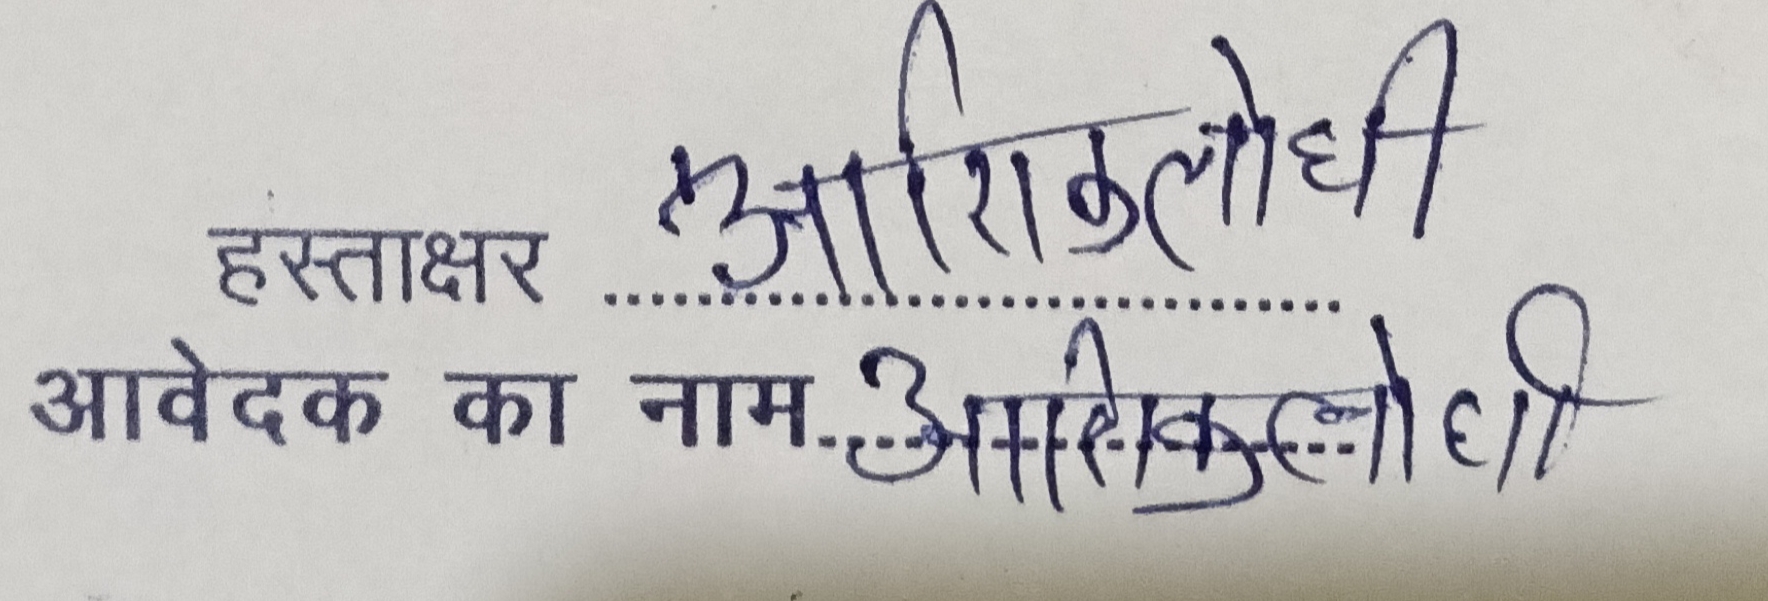 हस्ताक्षर आशिक लोधी
आवेदक का नाम आशिक लोधी